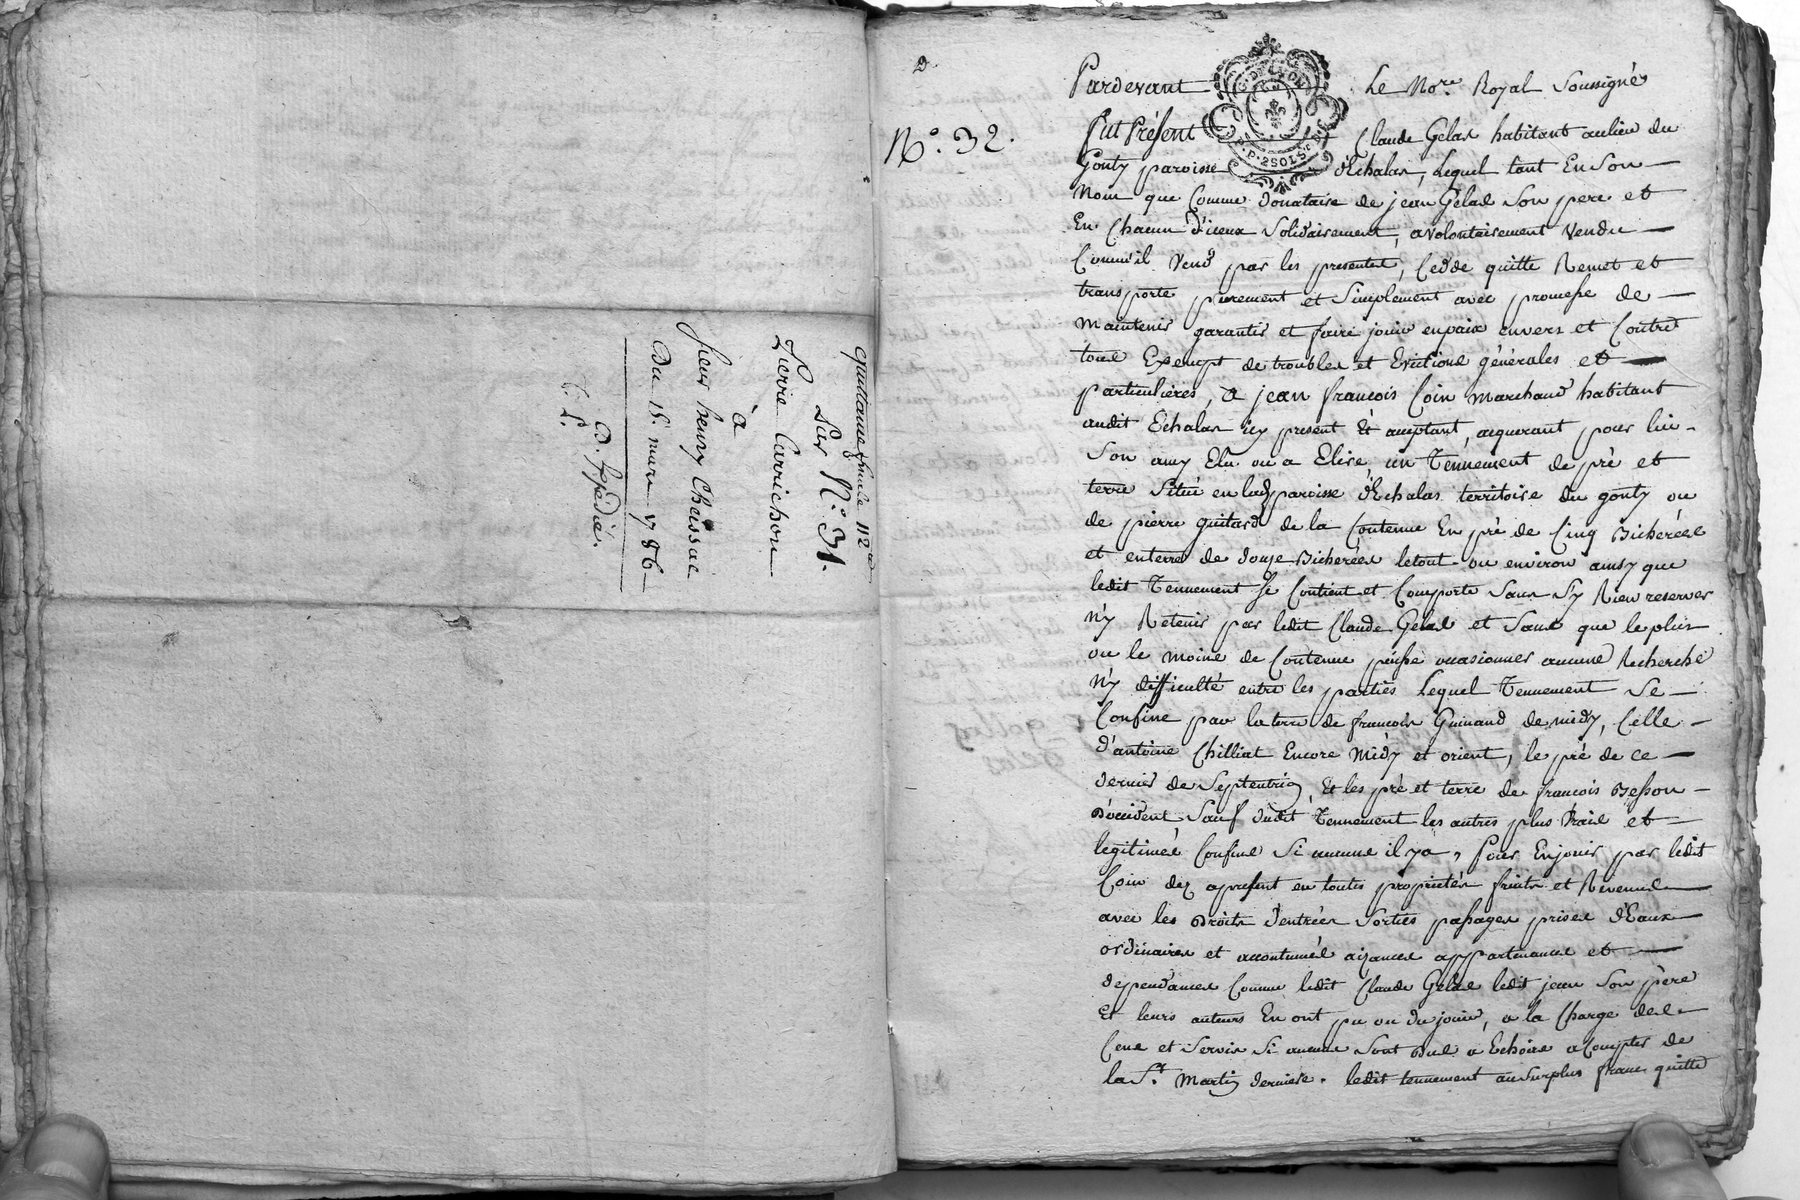 quittance
feuille 112
Sur N.° 31.
Pierre Carrichon
à
sieur henry Cheissac
Du 15. mars 1786
D. Expédié.
C. L.
2
N.° 32.
Pardevant Le No.re Royal Soussigné
G. DE LYON
P. P. 2 SOLS
Fut Présent Claude Gelas habitant aulieu du
Gouty paroisse d'Echalas, Lequel tant En Son
Nom que Comme donataire de jean Gelas Son pere et
En Chacun d'iceux Solidairement, a volontairement Vendu
Comm'il Vend par les presentes, Cedde quitte Remet et
transporte purement et Simplement avec promesse de
Maintenir garantir et faire jouir enpaix envers et Contre
tous Exempt de troubles et Evictions générales et
particulieres, a jean françois Coin Marchand habitant
audit Echalas icy present Et acceptant, acquerant pour lui
Son amy Elu ou a Elire, un Tennement de pré et
terre Situé en lad. paroisse d'Echalas territoire du gouty ou
de pierre guitard de la Contenue En pré de Cinq Bicherées
et enterre de douze Bicherées letout ou environ ainsy que
ledit Tennement Se Contient et Comporte Sans S'y Rien reserver
N'y Retenir par ledit Claude Gelas et Sans que le plus
ou le moins de Contenue puisse occasionner aucune Recherche
N'y difficulté entre les parties Lequel Tennement Se
Confine par la terre de françois Guinand de midy, Celle
d'antoine Chilliat Encore Midy et orient, le pré de ce
dernier de Septentrion, Et les pré et terre de françois Besson
D'occident Sauf dudit Tennement les autres plus Vrais et
legitimes Confins Si aucuns il y a, pour Enjouir par ledit
Coin dez apresent en toutes proprietés fruits et Revenus
avec les Droits d'entrées Sorties passages prises d'Eaux
ordinaires et accoutumés aizances appartenances et
dependances Comme ledit Claude Gelas ledit jean Son père
Et leurs auteurs En ont pu ou du jouir, a la Charge des
Cens et Servis Si aucuns Sont Dus a Echoire a Compter de
la S.t Martin derniere. ledit tennement au Surplus franc quitte